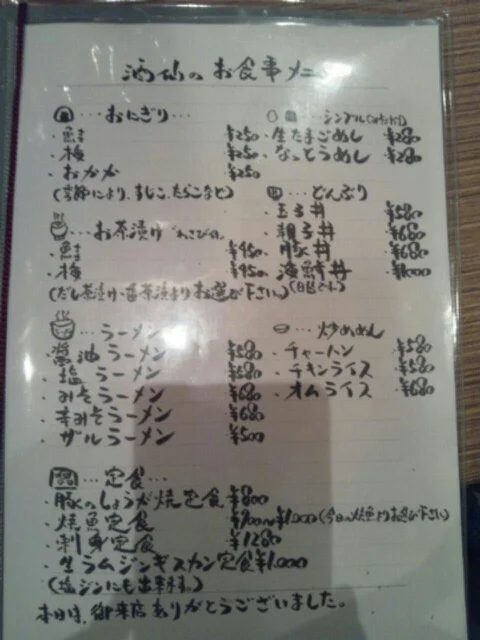 酒仙のお食事メニュー
…おにぎり…
・鮭 ¥250
・梅 ¥250
・おかか ¥250
(季節により、すじこ、たらこなど)
…お茶漬け わさびのり
・鮭 ¥450
・梅 ¥450
(だし茶漬け・番茶漬けよりお選び下さい)
…ラーメン
醤油ラーメン ¥580
・塩ラーメン ¥580
・みそラーメン ¥680
・辛みそラーメン ¥680
・ザルラーメン ¥500
…シンプル
・生たまごめし ¥280
・なっとうめし ¥280
…どんぶり
・玉子丼 ¥580
・親子丼 ¥680
・豚丼 ¥680
・海鮮丼 ¥1,000
…炒めめし
・チャーハン ¥580
・チキンライス ¥580
・オムライス ¥680
…定食…
豚のしょうが焼定食 ¥800
・焼魚定食 ¥900〜¥1,000(今日の焼魚よりお選び下さい)
・刺身定食 ¥1280
・生ラムジンギスカン定食 ¥1.000
(塩ジンにも出来ます。)
本日は、御来店ありがとうございました。